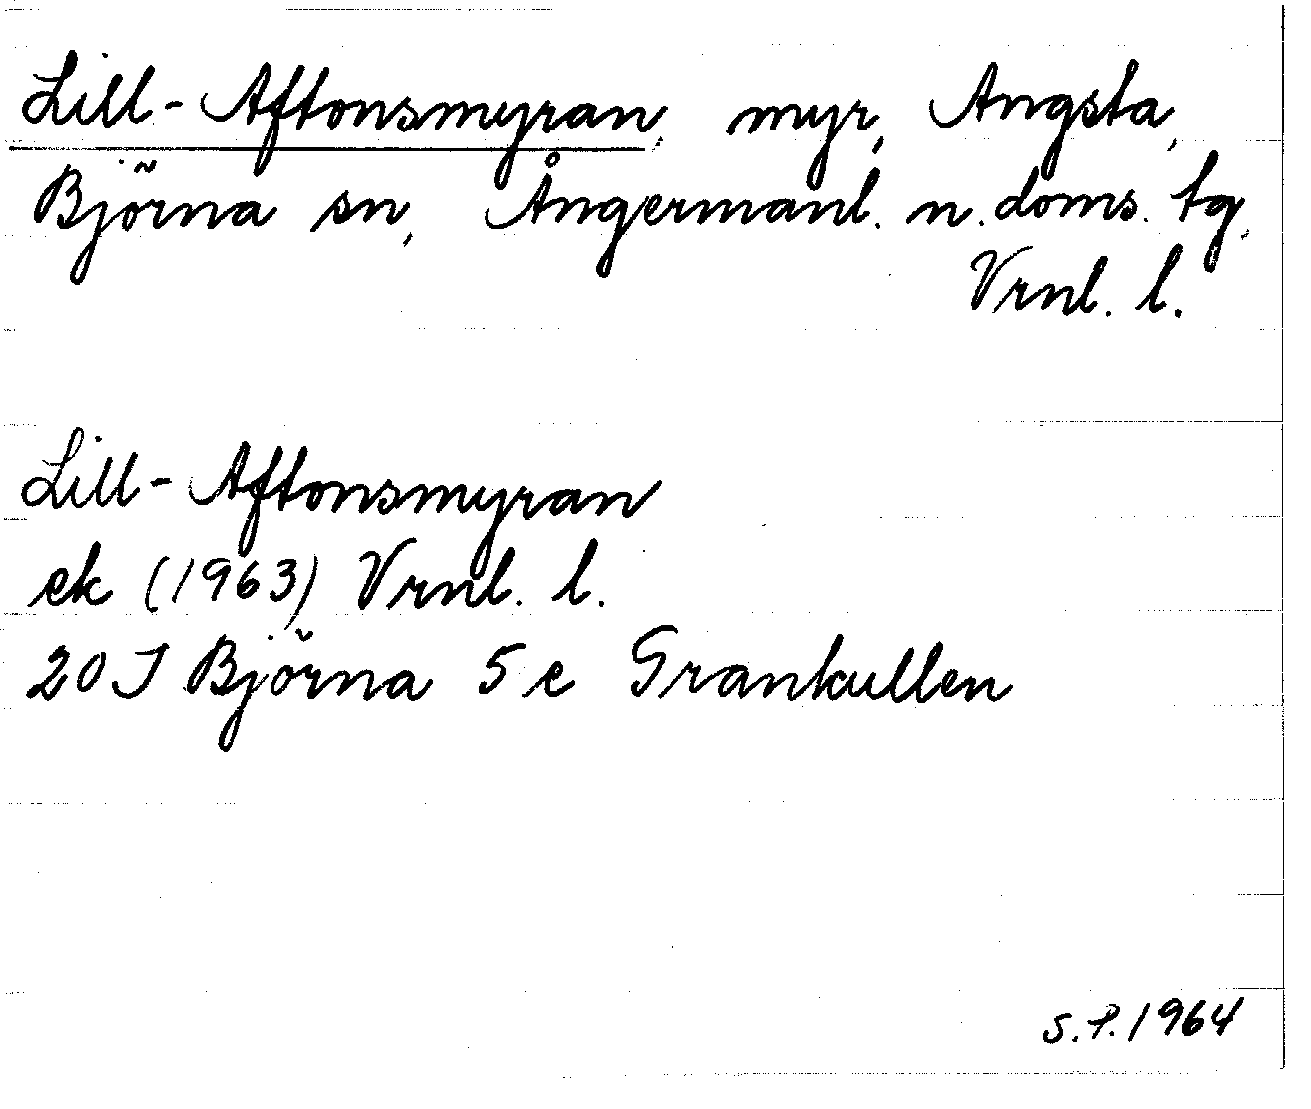 Lill-Aftonsmyran, myr, Angsta,
Björna sn, Ångermanl. n. doms. tg,
Vrnl. l.
Lill-Aftonsmyran
ek (1963) Vrnl. l.
20 J Björna 5 e Grankullen
S.P. 1964